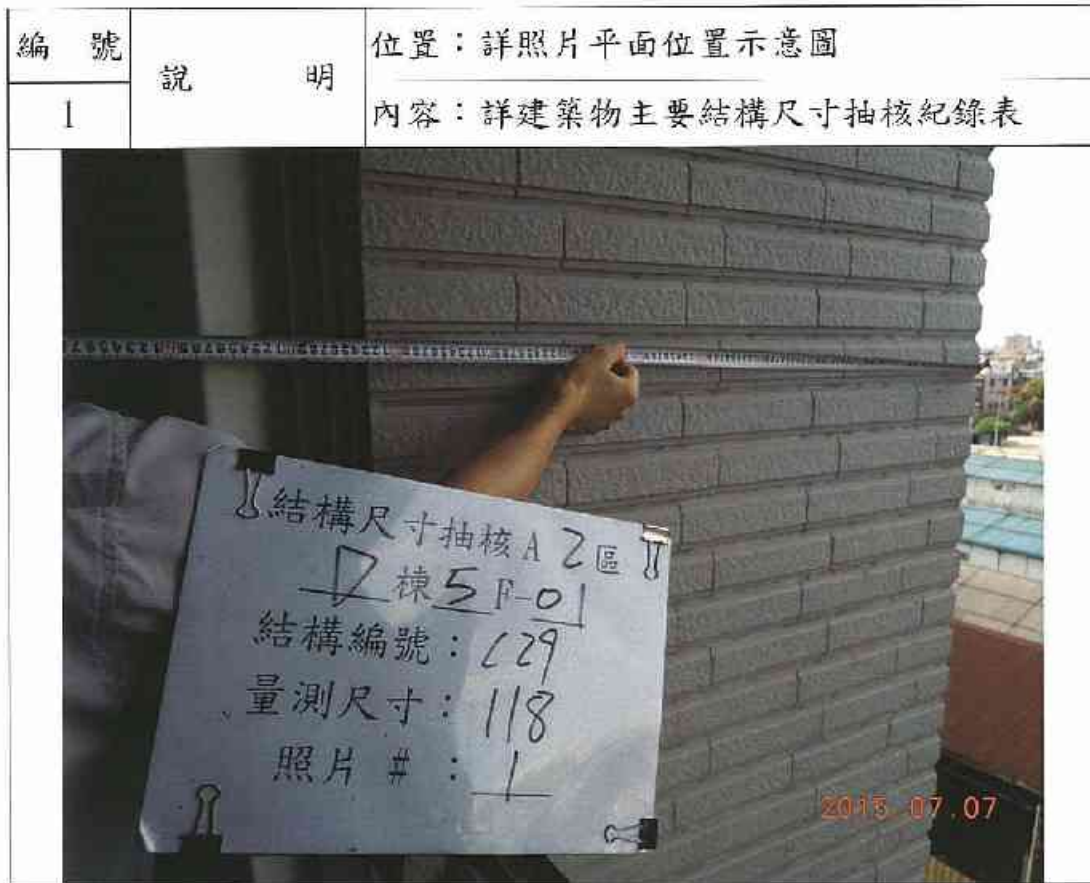 編號
1
說明
位置：詳照片平面位置示意圖
內容：詳建築物主要結構尺寸抽核紀錄表
結構尺寸抽核A 2區
D棟5F-01
結構編號：C29
量測尺寸：118
照片 #：1
2015.07.07